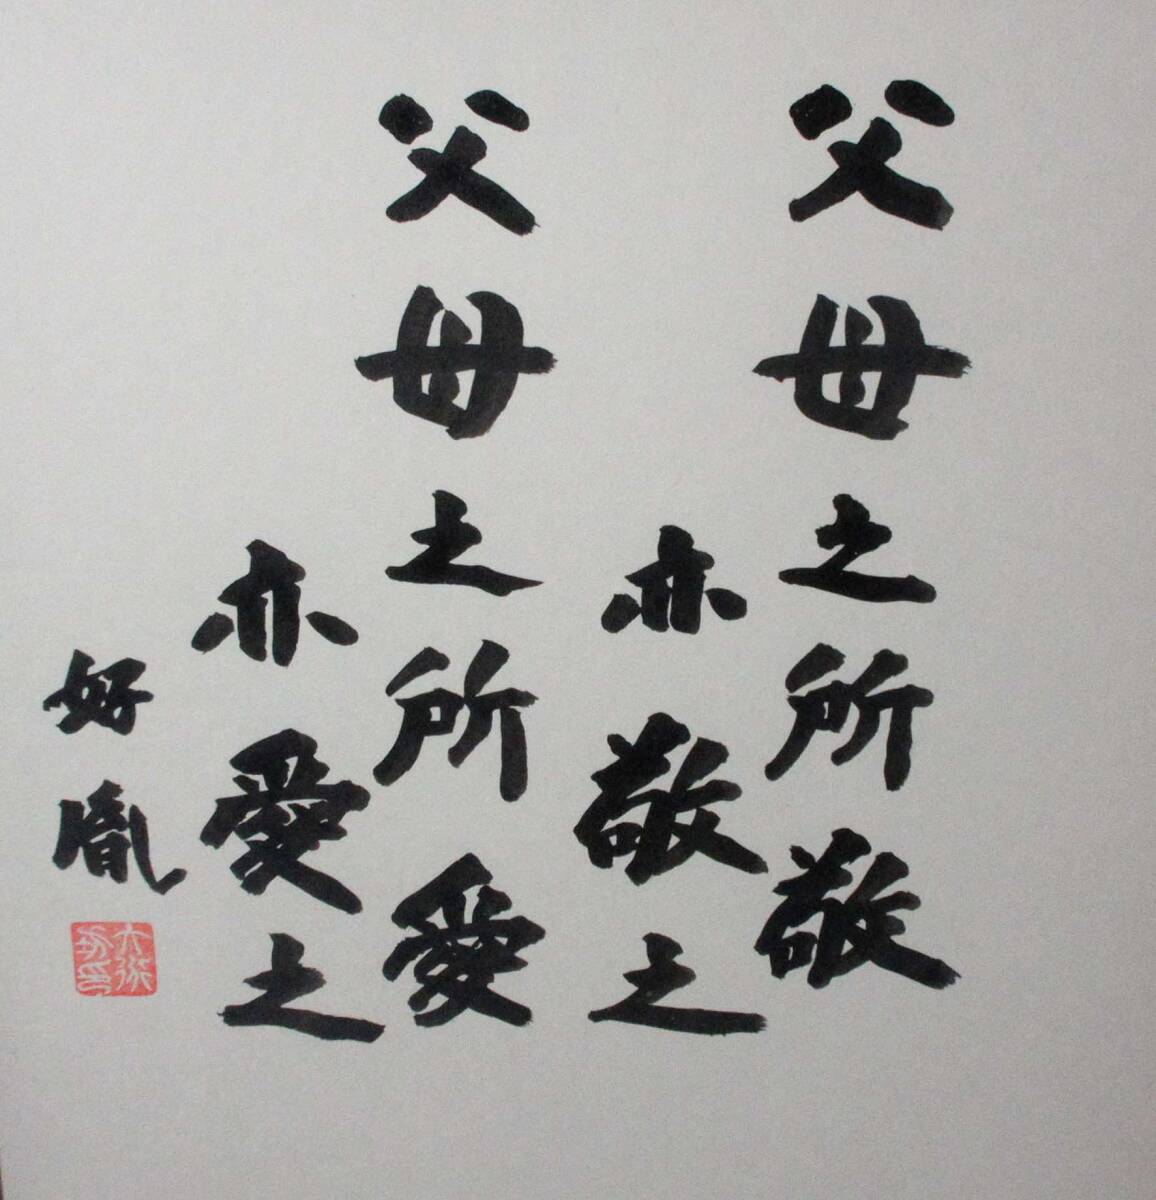 父母之所敬
亦敬之
父母之所愛
亦愛之
好胤